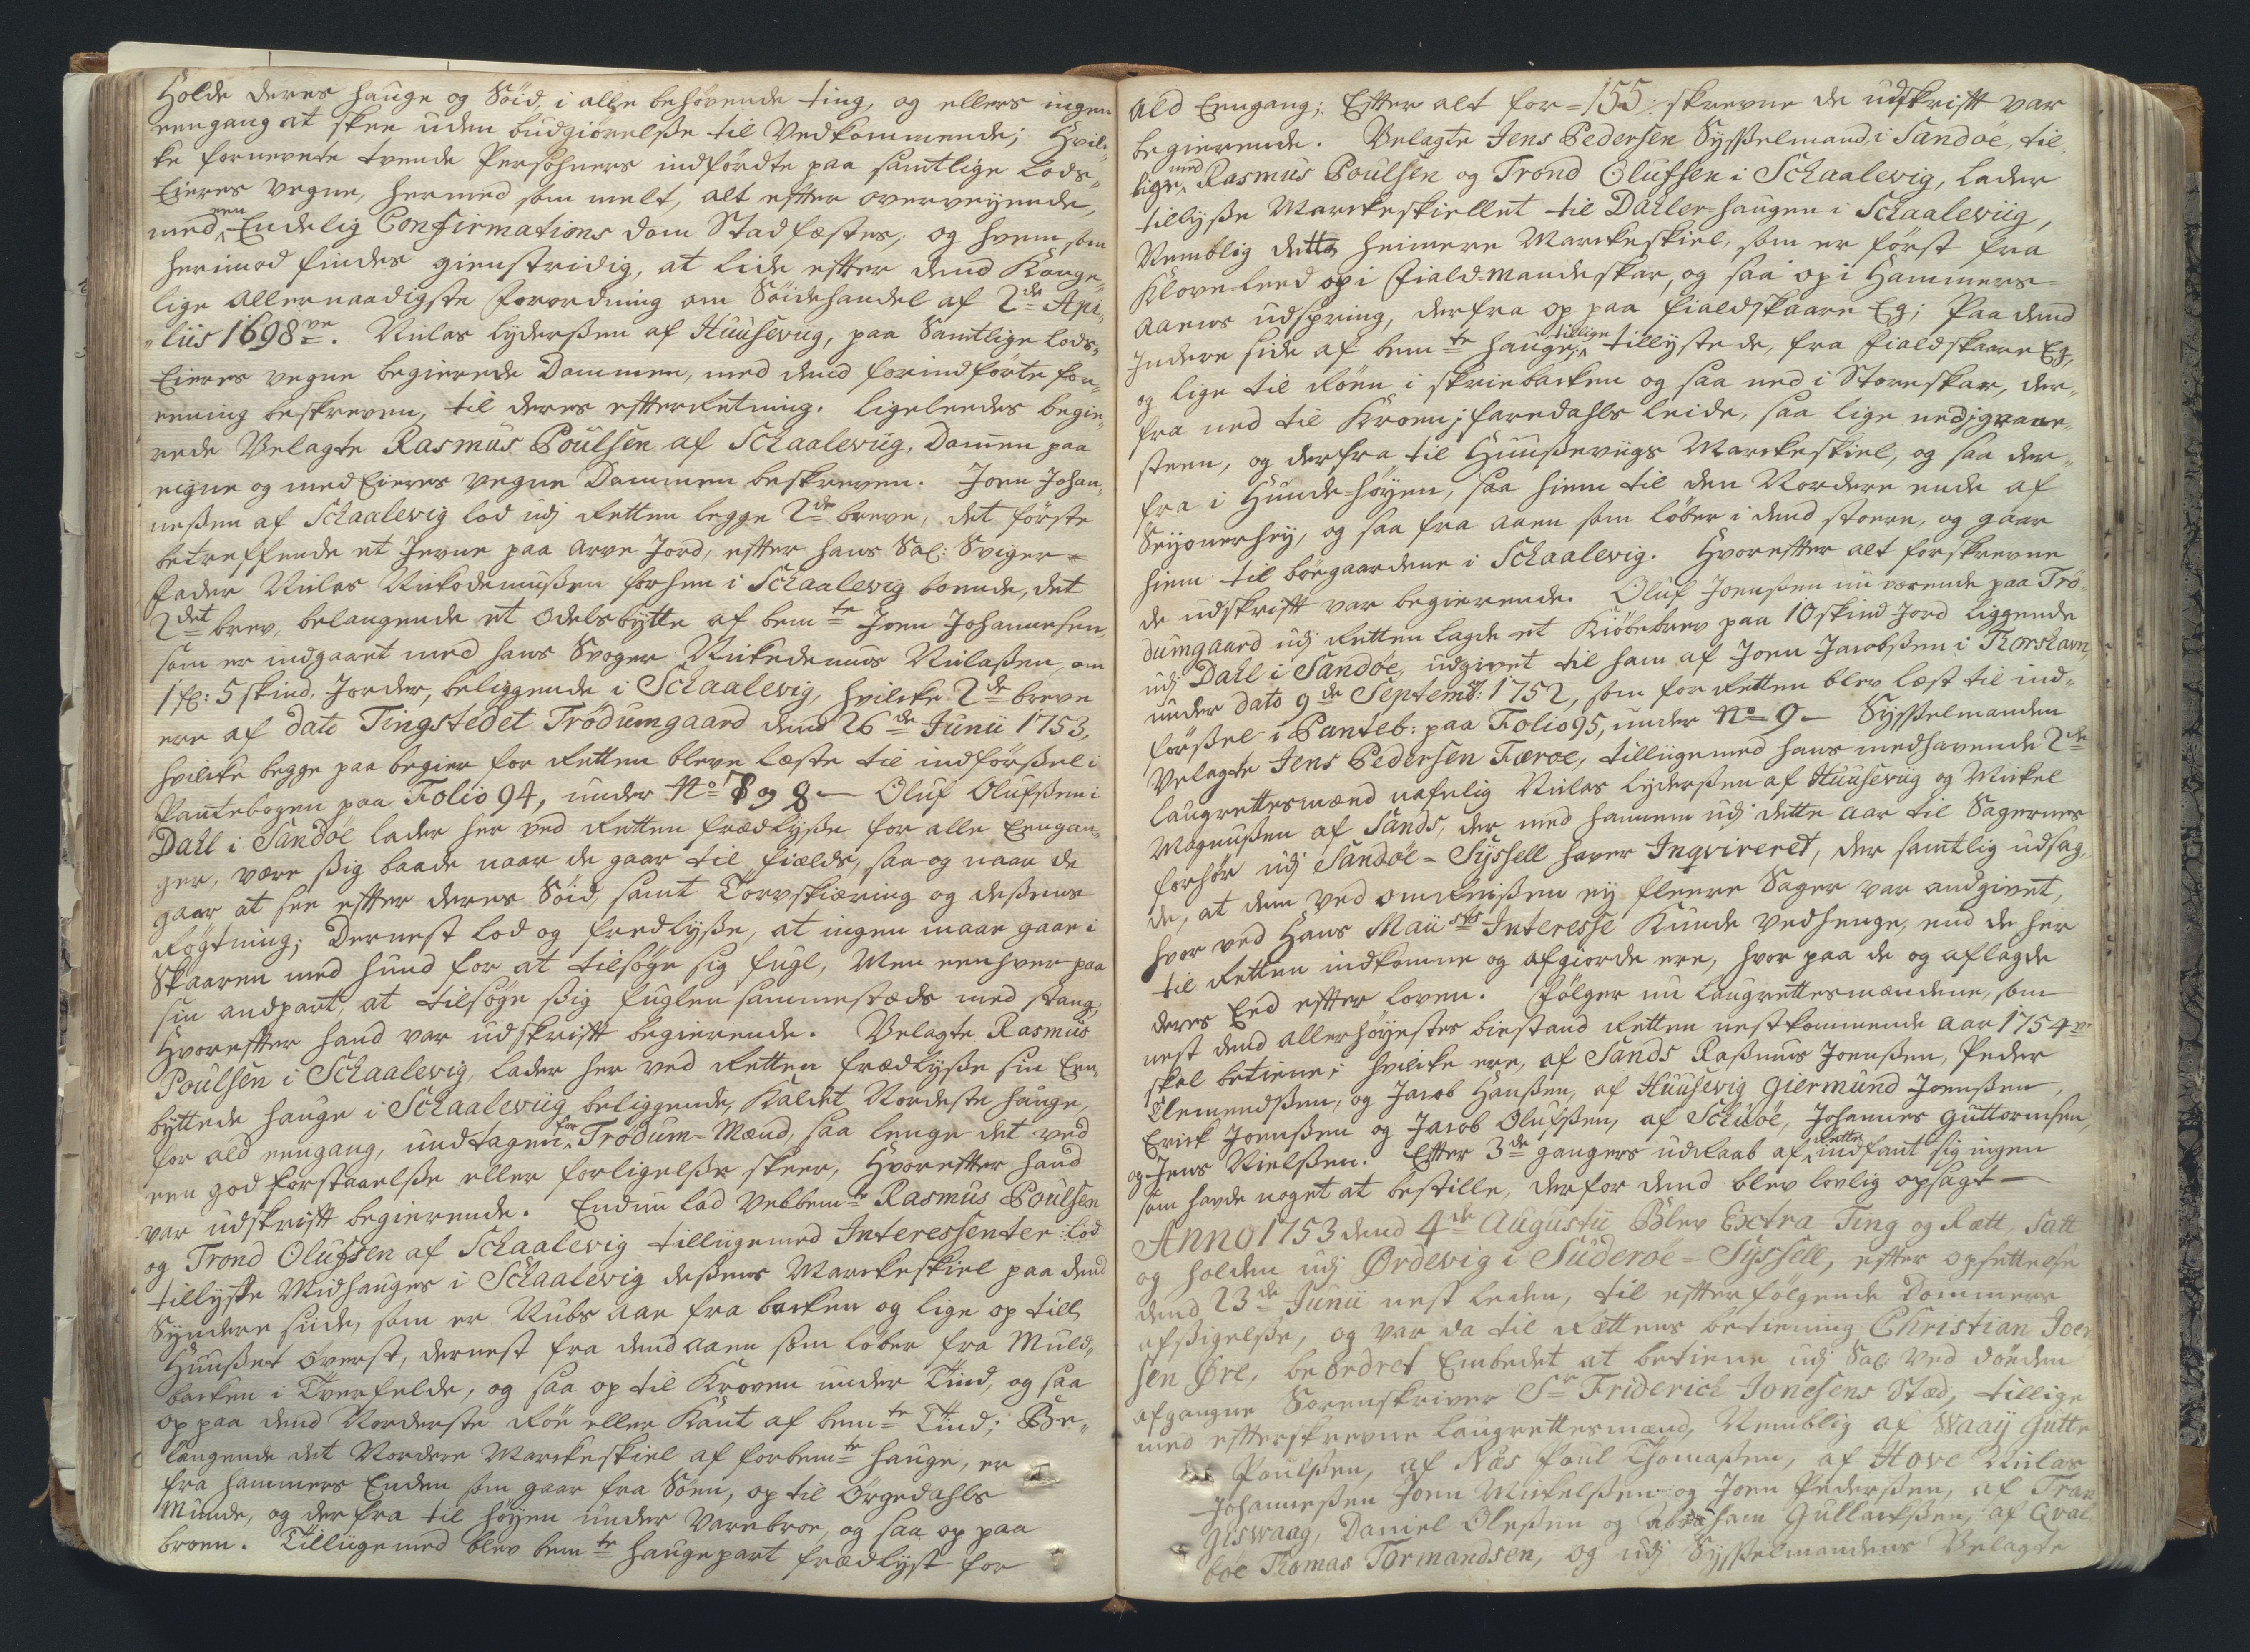 Holde deres hauge og Söid, i alle behövende ting, og ellers ingen
eengang at skee uden budgiörelsse til Vedkommende; Hvil-
ke fornevnte tvende Persohners indförte paa samtlige Lods-
Eieres vegne, hermed som melt, alt efter overveyende,
med een Endelig Confirmations dom Stadfæstes, og hvem som
herimod findes gienstridig, at lide efter dend Konge-
lige allernaadigste forordning om Söidehandel af 2de Api-
„liis 1698ve. Niclas Lyderssen af Huusevüg, paa Samtlige Lods-
Eieres vegne begierede Dommen, med dend forindförte for-
eening beskreven, til deres efterRetning. Ligeleedes begie-
rede Velagte Rasmus Poulsen af Schaalevüg, Domen paa
eigne og med Eieres vegne Dommen beskreven. Joen Johan-
nessen af Schaalevig lod udj Retten legge 2de breve, det förste
betreffende et Jevne paa arve Jord, efter hans Sal: Sviger-
fader Niclas Nickodemussen forhen i Schaalevig boende, det
2det brev, belangende et odelsbytte af bemte Joen Johannesen
som er indgaaet med hans Svoger Nickedemus Niclassen om
5 skind, Jorder, beliggende i Schaalevig, hvilcke 2de breve
ere af dato Tingstedet Trödumgaard dend 26de Junii 1753,
hvilcke begge paa begier for Retten bleve læste til indförssel i
Pantebogen paa Folio 94, under No 7 og 8 — Oluf Olufssen i
Dahl i Sandöe lader her ved Retten fredlysse for alle Eengan-
ger, være sig baade naar de gaar til fields, saa og naar de
gaar at see efter deres Söid, samt Törvskiæring og dessens
Rögtning; Dernest lod og fredlysse, at ingen maae gaae i
Skaaren med hund for at tilsöge sig fugl, Men eenhver paa
sin andpart, at tilsöge sig fuglen sammestæds med stang;
Hvorefter hand var udskrift begierende. Velagte Rasmus
Poulsen i Schaalevig, lader her ved Retten frædlysse sin Een-
byttede hauge i Schaalevüg beliggende, Kaldet Nordeste hauge,
for ald eengang, undtagen for Trödum-Mænd, saa lenge det ved
een god forstaaelsse eller forligelsse skeer, Hvorefter hand
var udskrift begierende. Endnu lod Velbemte Rasmus Poulsen
og Trond Olufsen af Schaalevig tilliigemed Interessenter: Lod
tillyste Midhauges i Schaalevig dessens Marckeskiel paa dend
Syndere siide, som er Nubs aae fra backen og lige op till
Huusset överst, dernest fra dend aaen som löber fra Muld-
backen i Tverfelde, og saa op til Kroven under Tind, og saa
op paa dend Norderste Röe eller Kant af bemte Tind; Be-
langende det Nordere Marckeskiel af forbemte hauge, er
fra hammers Enden som gaar fra Söen, op til Örgedahls
Munde, og der fra til höyen under Varebroe, og saa op paa
broen. Tilliigemed blev bemte haugepart frædlyst for
ald Eengang; Efter alt for- 155: skrevne de udskrift var
begierende. Velagte Jens Pedersen Sysselmand i Sandöe, til-
lige med Rasmus Poulsen og Trond Olufsen i Schaalevig, lader
tillysse Marckeskiellet til Dahler-haugen i Schaalevüg,
Nemblig dette heimere Marckeskiel, som er först fra
Kloveleed op i Field-mandeskar, og saa op i Hammers-
aaens udspring, derfra op paa fieldskaare Eg; Paa dend
Jndere side af bemte hauge, tillige tillystede, fra fieldskaare Eg,
og lige til Röen i skriebacken og saa ned i Storeskar, der-
fra ned til Kroen i faredahls leide, saa lige ned i graae-
steen, og derfra til Huussevügs Marckeskiel, og saa der-
fra i Hunde-höyen, saa hiem til den Nordere ende af
Seyonerhey, og saa fra aaen som löber i dend stoere, og gaar
hiem til böegaardene i Schaalevig. Hvorefter alt forskrevne
de udskrift var begierende. Oluf Joenssen nu værende paa Trö-
dumgaard udj Retten lagde et Kiöbebrev paa 10 skind Jord liggende
udj Dahl i Sandöe, udgivet til ham af Joen Jacobssen i Thorshavn,
under dato 9de Septembr: 1752, som for Retten blev læst til ind-
förssel i Panteb: paa Folio 95, under No 9 — Sysselmanden
Velagte Jens Pedersen Færoe, tilliigemed hans medhavende 2de
Laugrettesmænd nafnlig Niclas Lyderssen af Huusevüg og Mickel
Magnussen af Sands, der med hannem udj dette aar til Sagernes
forhör udj Sandöe-Syssell haver Inqvireret, der samtlig udsag-
de, at dem ved omReissen ey fleere Sager var andgivet,
hvor ved Hans Maiists Interesse Kunde vedhenge, end de her
til Retten indkomne og afgiorde ere, hvor paa de og aflagde
deres Eed efter loven. Fölger nu Laugrettesmændene, som
nest dend allerhöyestes biestand Retten nestkommende aar 1754ve
skal betiene; hvilcke ere, af Sands Rassmus Joenssen, Peder
Clemendssen, og Jacob Hanssen, af Huusevig Giermund Joenssen,
Erick Joenssen og Jacob Olufssen, af Schuöe, Johannes Guttormsen,
og Jens Nielssen. Efter 3de gangers udRaab af Rette indfant sig ingen
som havde noget at bestille, derfor dend blev lovlig opsagt —
Anno 1753 dend 4de Augustii Blev Extra Ting og Rætt satt
og holden udj Ørdevig i Suderöe-Syssell, efter opsettelse
dend 23de Junii nest leeden, til efterfölgende Dommers
afssigelsse, og var da til Rettens betiening Christian Joen
sen Øre, beordret Embedet at betiene udj Sal: ved döeden
afgangne Sorenskriver Sr Friderich Jonesens Stæd, tillige
med efterskrevne Laugrettesmænd, Nemblig af Waaij Gutte
Poulssen, af Næs Poul Thomassen, af Hove Niclas
Johannessen Joen Mickelssen og Joen Pederssen, af Tran
giswaag, Daniel Olessen og abraham Gullackssen, af Qval
böe Thomas Tormandsen, og udj Sysselmandens Velagte